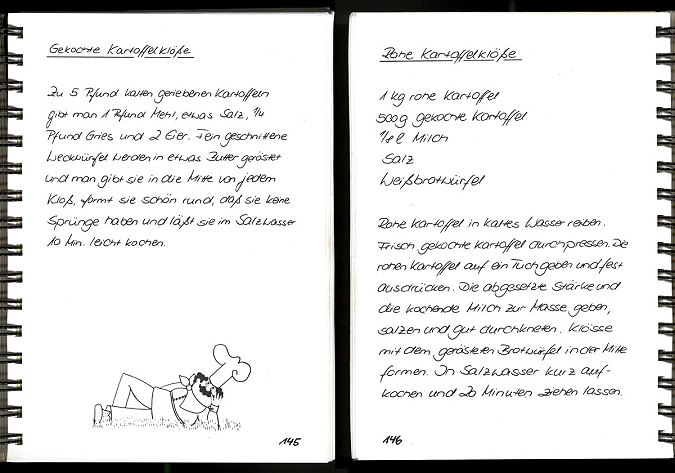 Gekochte Kartoffelklöße
Zu 5 Pfund kalten geriebenen Kartoffeln
gibt man 1 Pfund Mehl, etwas Salz, 1/4
Pfund Gries und 2 Eier. Fein geschnittene
Weckwürfel werden in etwas Butter geröstet
und man gibt sie in die Mitte von jedem
Kloß, formt sie schön rund, daß sie keine
Sprünge haben und läßt sie im Salzwasser
10 Min. leicht kochen.
145
Rohe Kartoffelklöße
1 kg rohe Kartoffel
500g gekochte Kartoffel
1/8 l Milch
Salz
Weißbrotwürfel
Rohe Kartoffel in kaltes Wasser reiben.
Frisch gekochte Kartoffel durchpressen. Die
rohen Kartoffel auf ein Tuch geben und fest
ausdrücken. Die abgesetzte Stärke und
die kochende Milch zur Masse geben,
salzen und gut durchkneten. Klösse
mit dem gerösteten Brotwürfel in der Mitte
formen. In Salzwasser kurz auf-
kochen und 20 Minuten ziehen lassen.
146